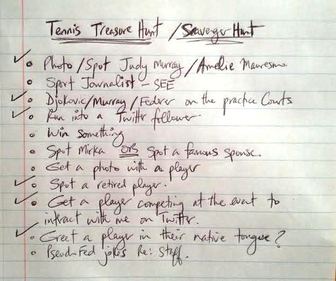 Tennis Treasure Hunt / Scavenger Hunt
Photo / Spot Judy Murray / Amelie Mauresmo
Sport Journalist - SEE
Djokovic/Murray/Federer on the practice Courts
Run into a Twitter follower
Win something
Spot Mirka OR Spot a famous spouse.
Get a photo with a player
Spot a retired player.
Get a player competing at the event to
interact with me on Twitter.
Greet a player in their native tongue?
PseudoFed jokes Re: Staff.